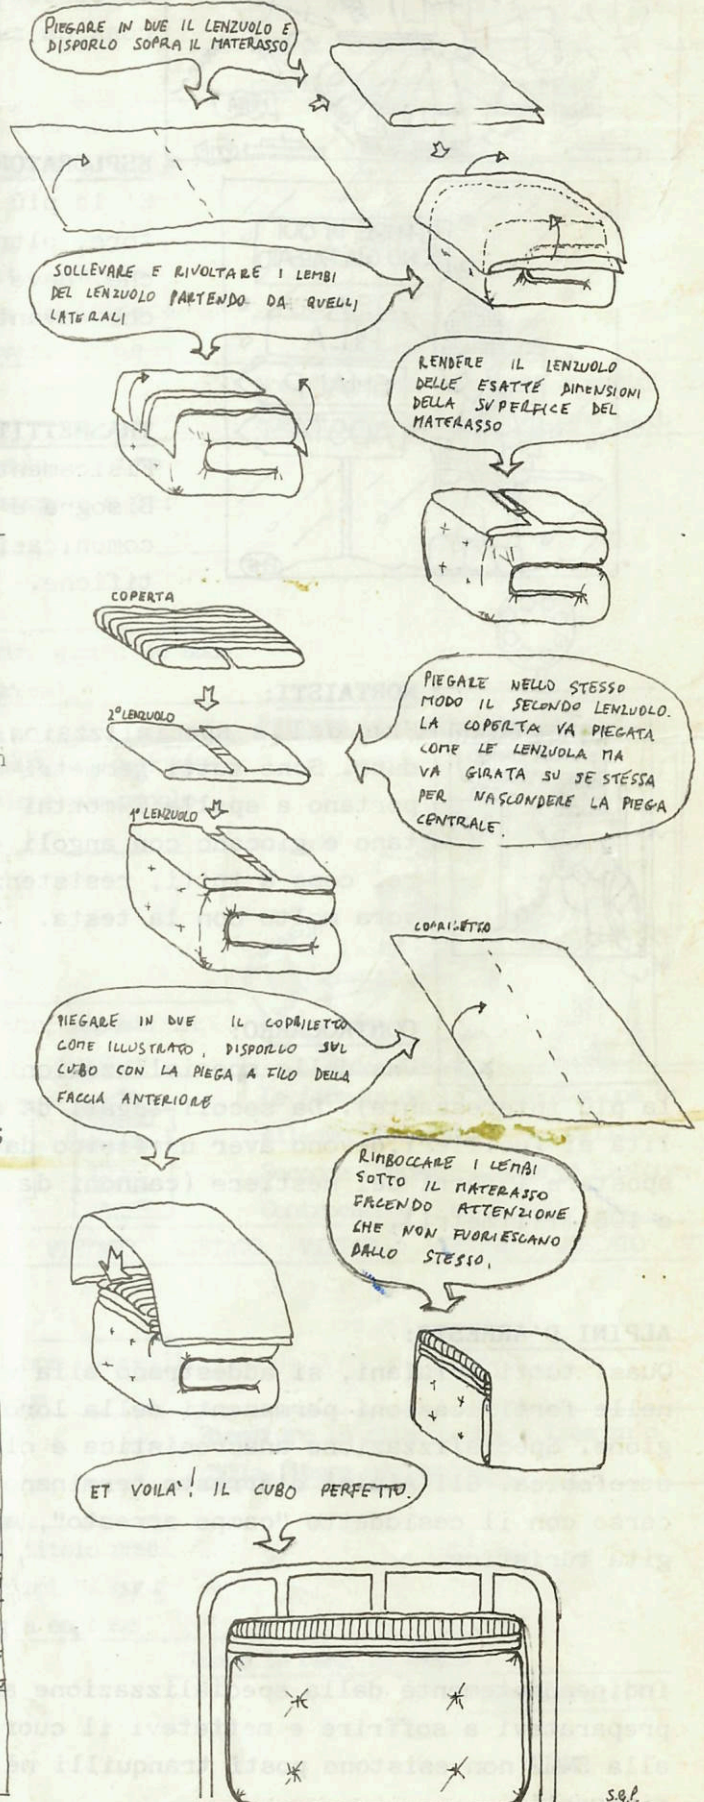 PIEGARE IN DUE IL LENZUOLO E
DISPORLO SOPRA IL MATERASSO
SOLLEVARE E RIVOLTARE I LEMBI
DEL LENZUOLO PARTENDO DA QUELLI
LATERALI
RENDERE IL LENZUOLO
DELLE ESATTE DIMENSIONI
DELLA SUPERFICE DEL
MATERASSO
COPERTA
2° LENZUOLO
1° LENZUOLO
PIEGARE NELLO STESSO
MODO IL SECONDO LENZUOLO.
LA COPERTA VA PIEGATA
COME LE LENZUOLA MA
VA GIRATA SU SE STESSA
PER NASCONDERE LA PIEGA
CENTRALE.
COPRILETTO
PIEGARE IN DUE IL COPRILETTO
COME ILLUSTRATO, DISPORLO SUL
CUBO CON LA PIEGA A FILO DELLA
FACCIA ANTERIORE
RIMBOCCARE I LEMBI
SOTTO IL MATERASSO
FACENDO ATTENZIONE
CHE NON FUORIESCANO
DALLO STESSO.
ET VOILA'! IL CUBO PERFETTO.
S.G.P.